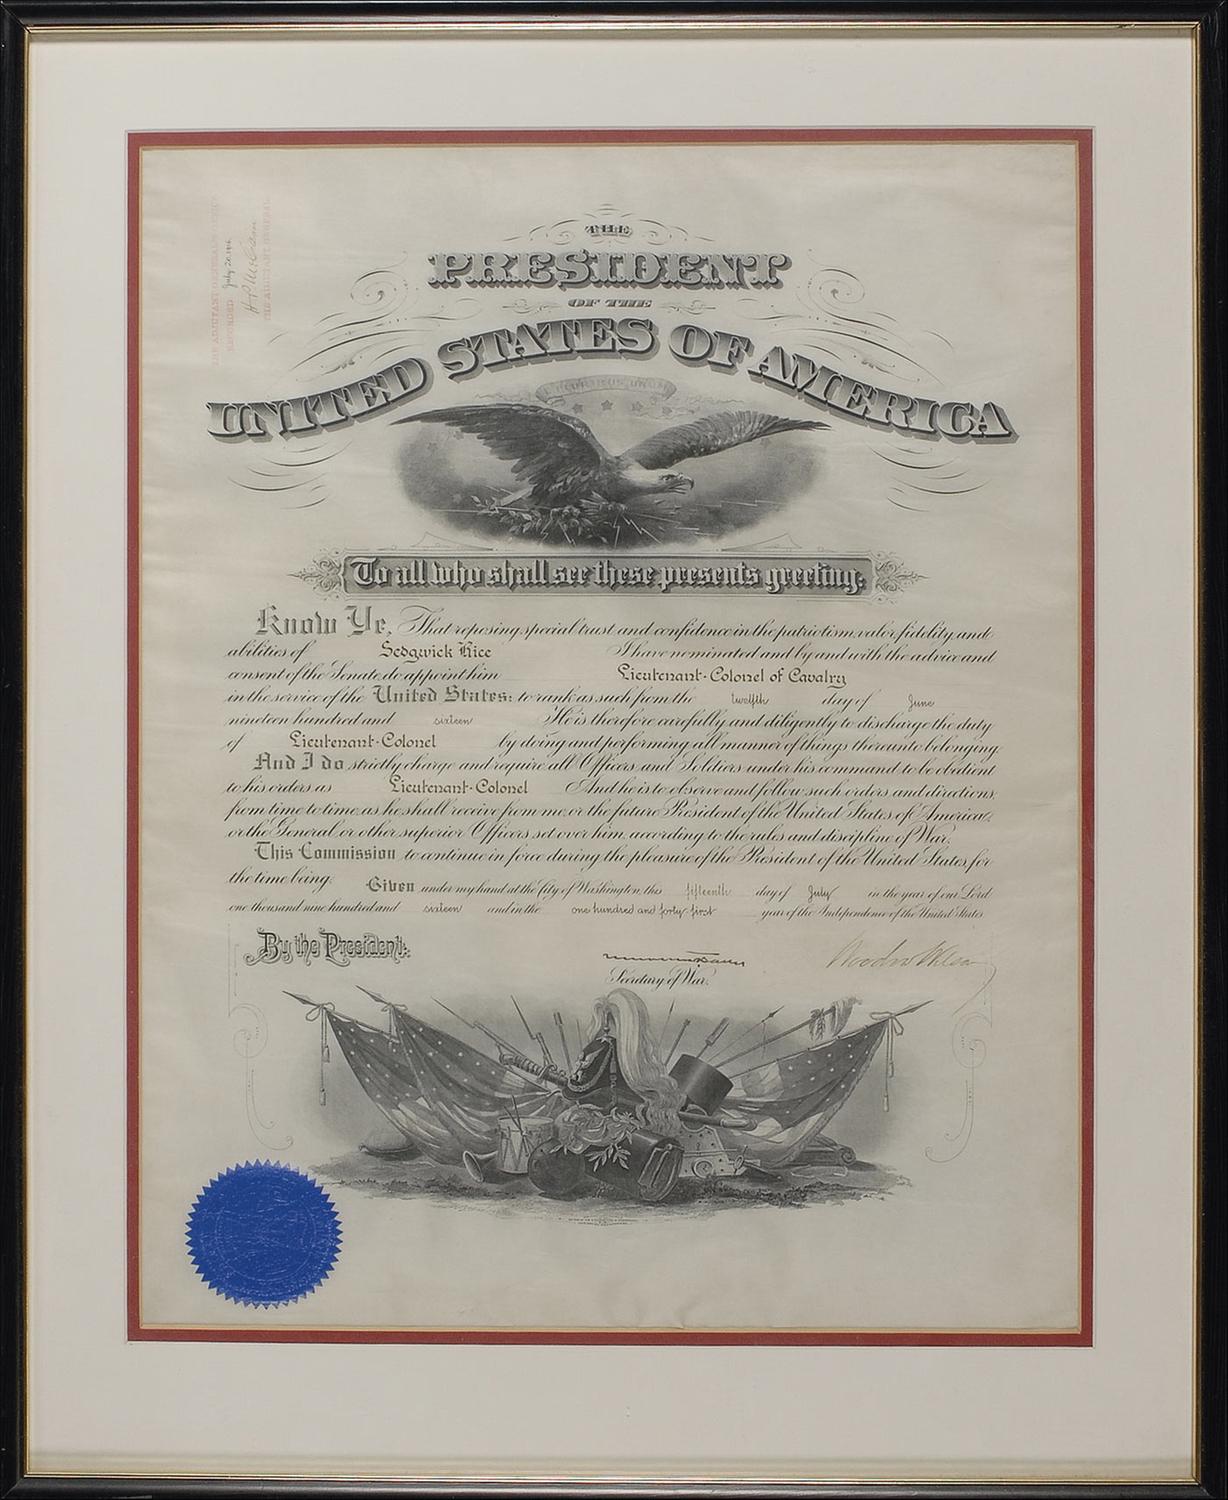 THE
PRESIDENT
OF THE
UNITED STATES OF AMERICA
E PLURIBUS UNUM
To all who shall see these presents greeting:
Know Ye, That reposing special trust and confidence in the patriotism, valor, fidelity and
abilities of Sedgwick Rice I have nominated and by and with the advice and
consent of the Senate, do appoint him Lieutenant-Colonel of Cavalry
in the service of the United States: to rank as such from the twelfth day of June
nineteen hundred and sixteen He is therefore carefully and diligently to discharge the duty
of Lieutenant-Colonel by doing and performing all manner of things thereunto belonging.
And I do strictly charge and require all Officers and Soldiers under his command to be obedient
to his orders as Lieutenant-Colonel And he is to observe and follow such orders and directions,
from time to time, as he shall receive from me, or the future President of the United States of America,
or the General or other superior Officers set over him, according to the rules and discipline of War.
This Commission to continue in force during the pleasure of the President of the United States, for
the time being.
Given under my hand at the City of Washington, this fifteenth day of July in the year of our Lord
one thousand nine hundred and sixteen and in the one hundred and forty-first year of the Independence of the United States
By the President:
Woodrow Wilson
Secretary of War.
THE ADJUTANT GENERAL'S OFFICE
RECORDED July 20, 1916
THE ADJUTANT GENERAL